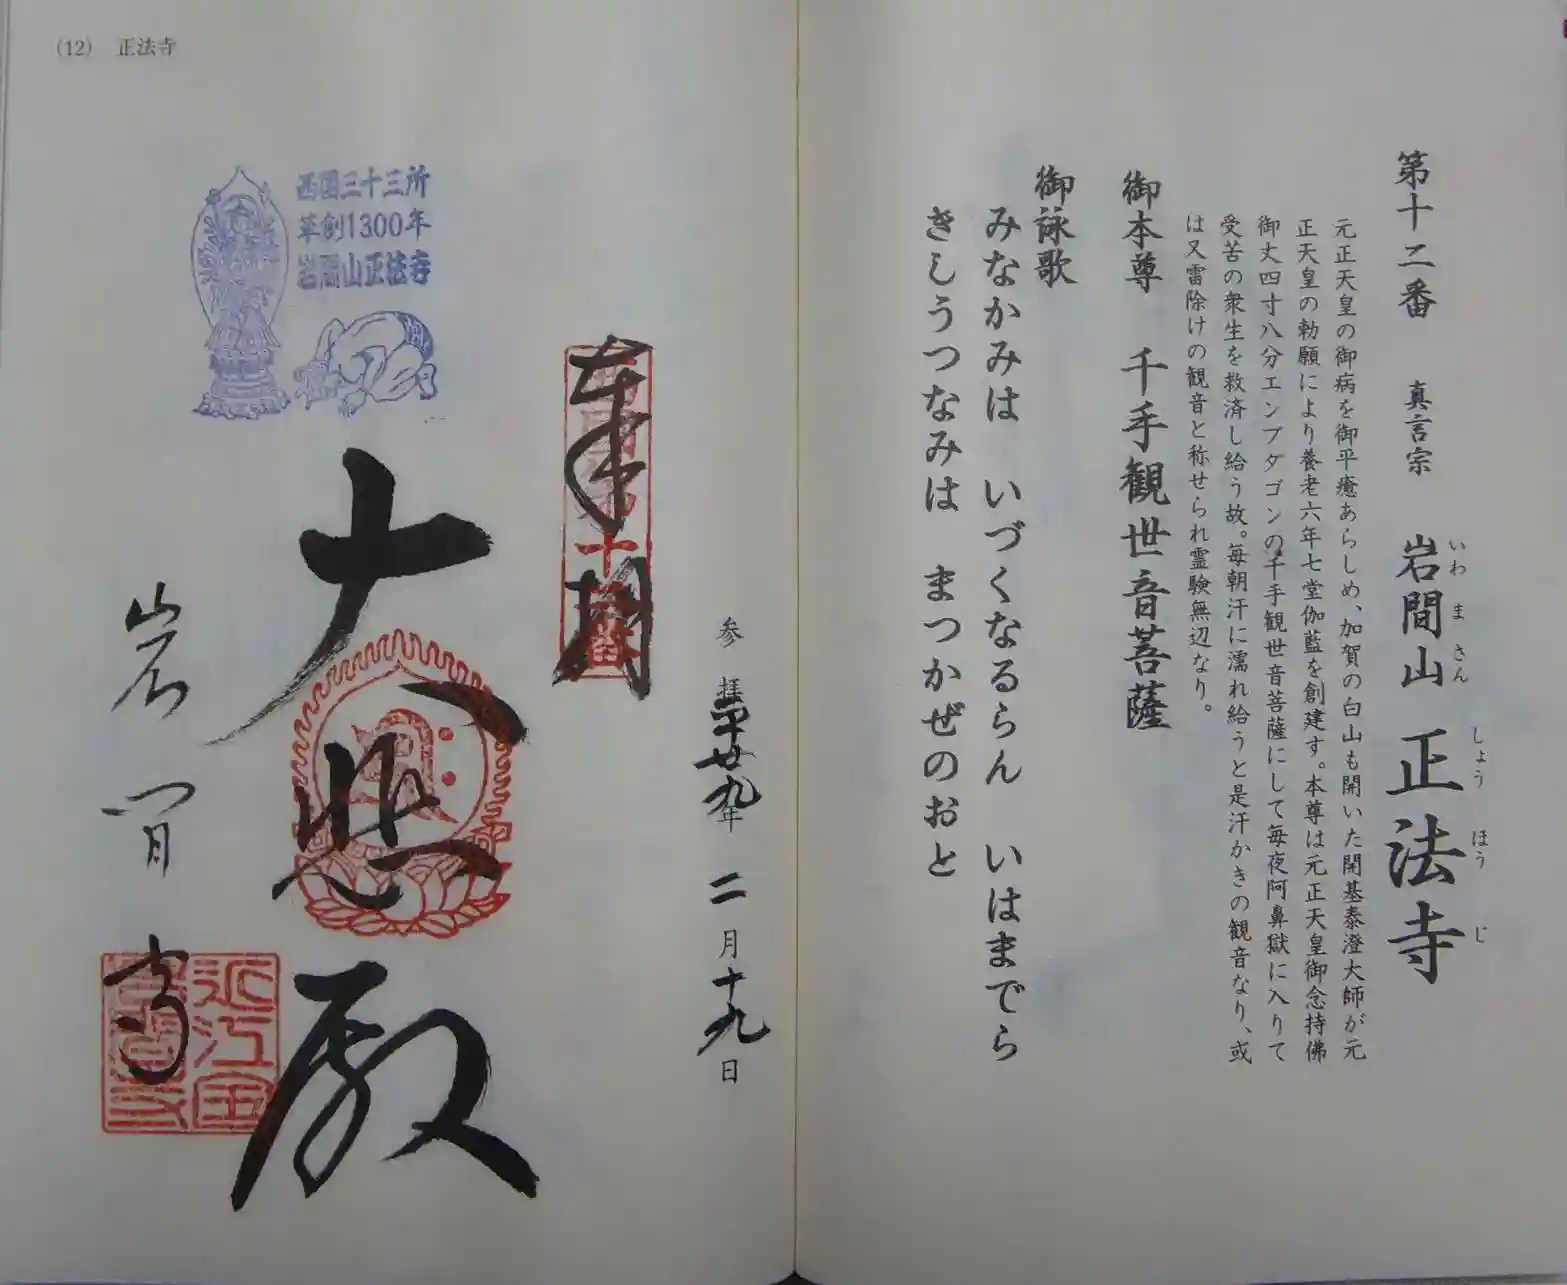 第十二番 真言宗 岩間山 正法寺
いわ ま さん しょう ほう じ
元正天皇の御病を御平癒あらしめ、加賀の白山も開いた開基泰澄大師が元
正天皇の勅願により養老六年七堂伽藍を創建す。本尊は元正天皇御念持佛
御丈四寸八分エンブダゴンの千手観世音菩薩にして毎夜阿鼻獄に入りて
受苦の衆生を救済し給う故。毎朝汗に濡れ給うと是汗かきの観音なり、或
は又雷除けの観音と称せられ霊験無辺なり。
御本尊 千手観世音菩薩
御詠歌
みなかみは いづくなるらん いはまでら
きしうつなみは まつかぜのおと
(12) 正法寺
参拝 平廿九年 二月十九日
奉拝
大悲殿
岩間寺
西国三十三所
草創1300年
岩間山正法寺
近江国